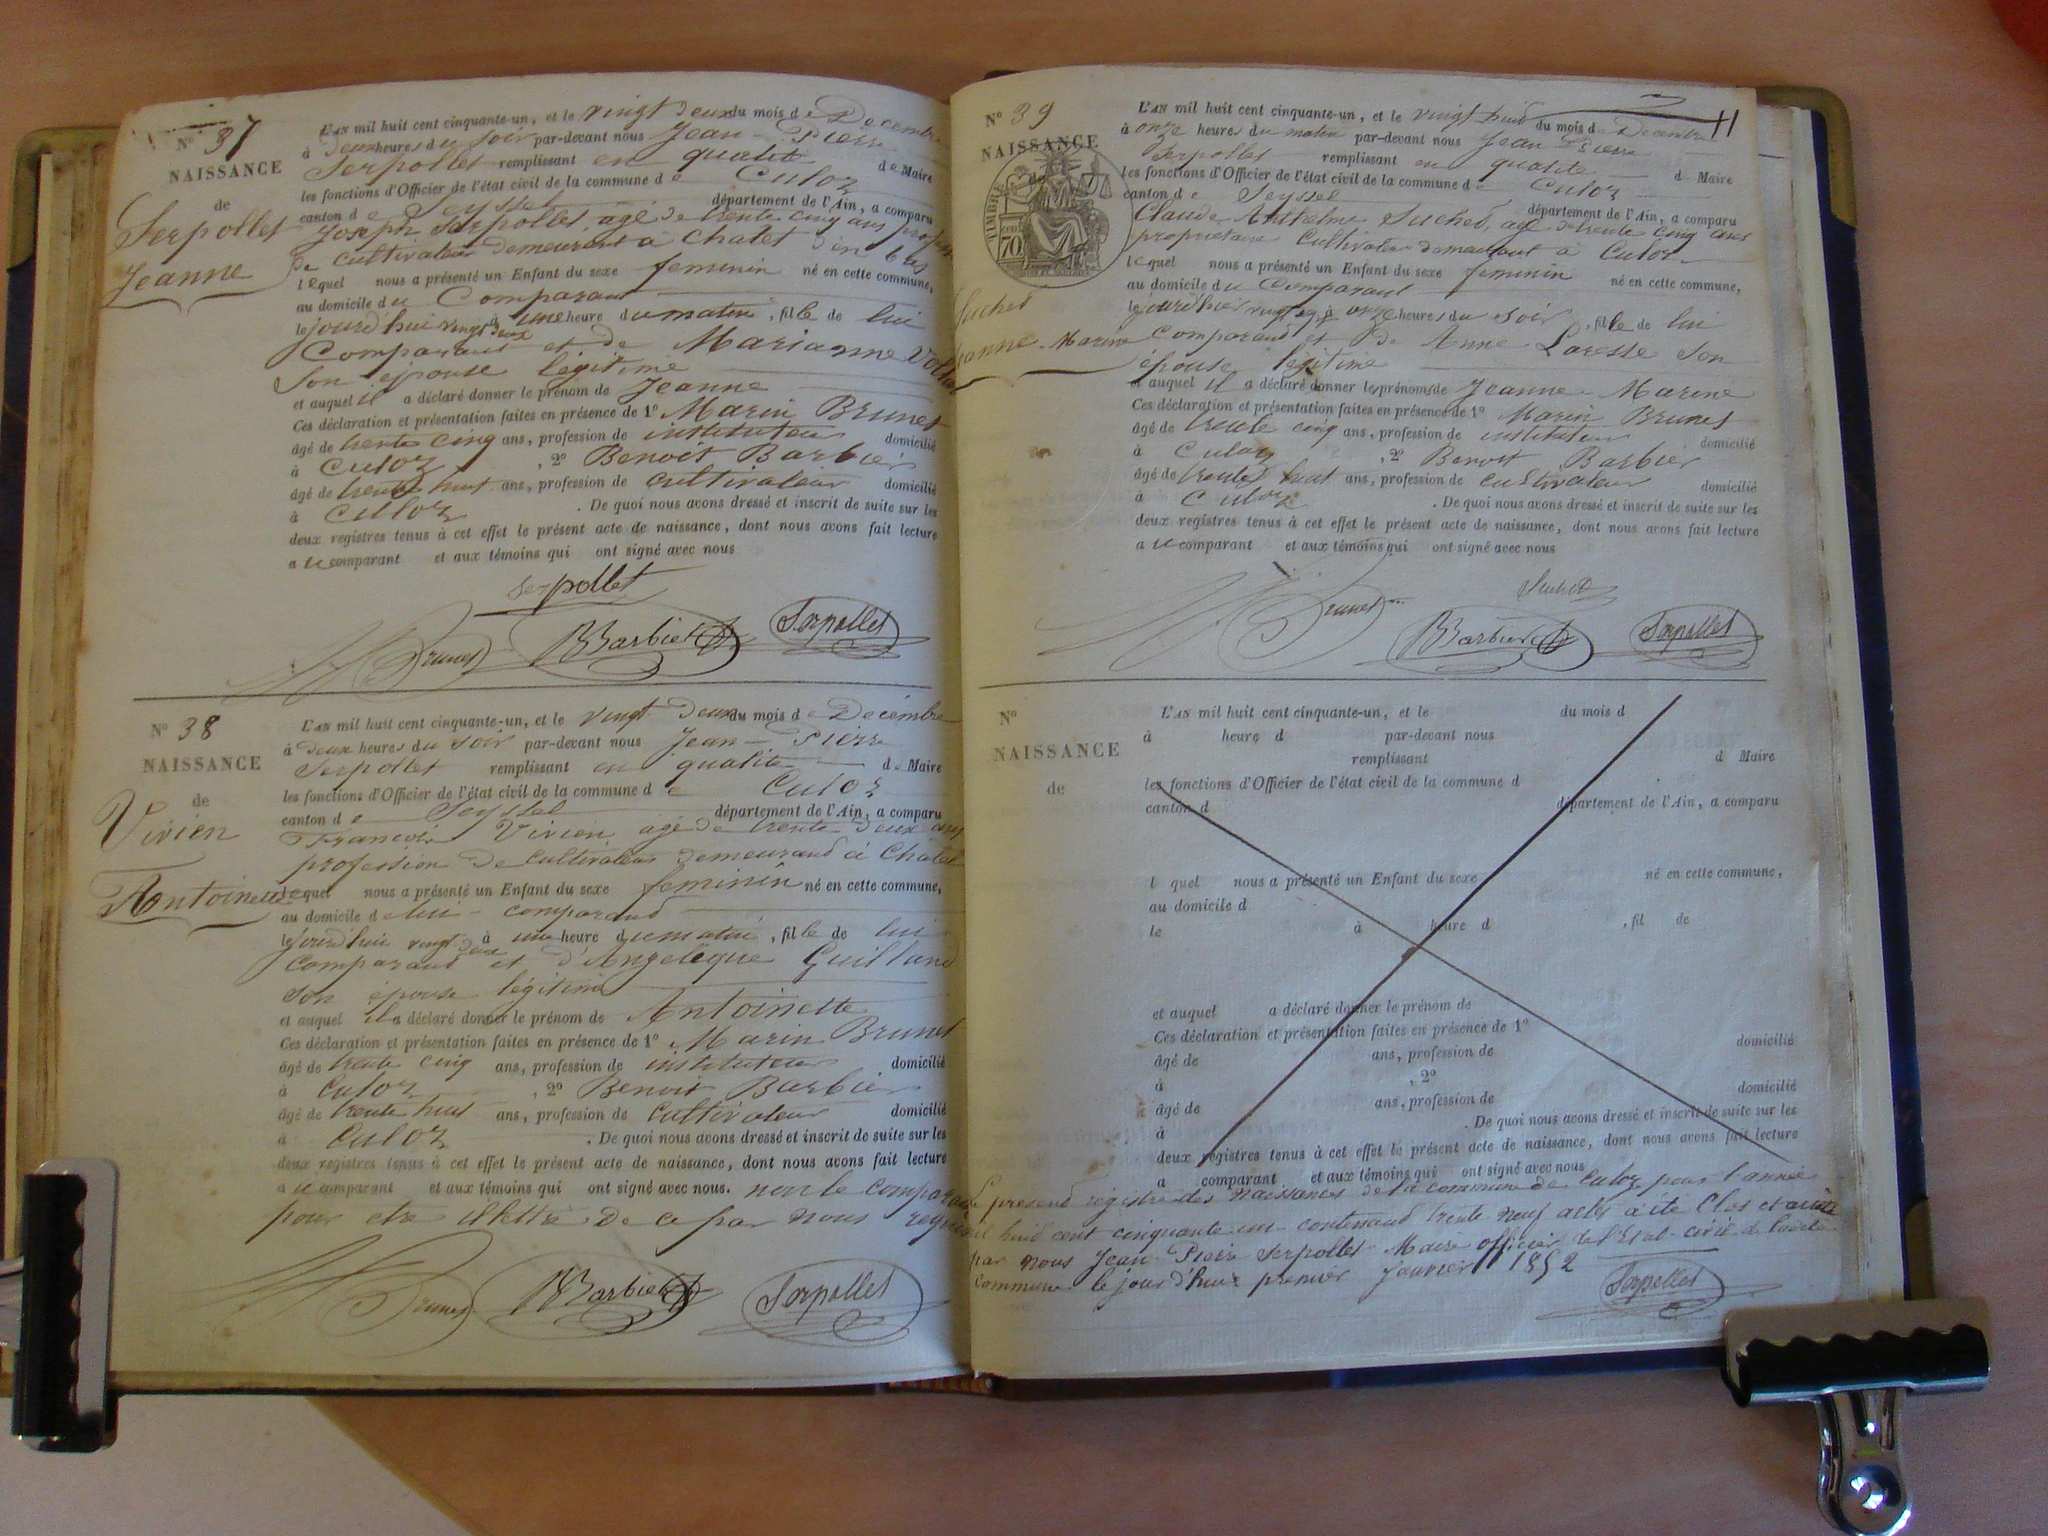 N° 37
NAISSANCE
de
Serpollet
Jeanne
L'AN mil huit cent cinquante-un, et le vingt deux du mois de Decembre
à deux heures du soir par-devant nous Jean-Pierre
Serpollet remplissant en qualité de Maire
les fonctions d'Officier de l'état civil de la commune de Culoz
canton de Seyssel département de l'Ain, a comparu
Joseph Serpollet, agé de trente cinq ans profession
de cultivateur demeurant à Chatel d'en bas
lequel nous a présenté un Enfant du sexe feminin né en cette commune,
au domicile du Comparant
le jourd'hui vingt deux à une heure du matin, fille de lui
Comparant et de Marianne
Son epouse légitime
et auquel il a déclaré donner le prénom de Jeanne
Ces déclaration et présentation faites en présence de 1° Marin Brunet
âgé de trente cinq ans, profession de instituteur domicilié
à Culoz, 2° Benoit Barbier
âgé de trente huit ans, profession de cultivateur domicilié
à Culoz. De quoi nous avons dressé et inscrit de suite sur les
deux registres tenus à cet effet le présent acte de naissance, dont nous avons fait lecture
au comparant et aux témoins qui ont signé avec nous
Serpollet
Brunet BBarbier Serpollet
N° 38
NAISSANCE
de
Vivien
Antoinette
L'AN mil huit cent cinquante-un, et le vingt deux du mois de Decembre
à deux heures du soir par-devant nous Jean-Pierre
Serpollet remplissant en qualité de Maire
les fonctions d'Officier de l'état civil de la commune de Culoz
canton de Seyssel département de l'Ain, a comparu
Francois Vivien agé de trente-deux ans
profession de cultivateur demeurand à Chatel
lequel nous a présenté un Enfant du sexe feminin né en cette commune,
au domicile de lui-comparand
le jourd'hui vingt deux à une heure du matin, fille de lui
comparant et d'Angelèque Guilland
son épouse légitime
et auquel il a déclaré donner le prénom de Antoinette
Ces déclaration et présentation faites en présence de 1° Marin Brunet
âgé de trente cinq ans, profession de instituteur domicilié
à Culoz, 2° Benoit Barbier
âgé de trente huit ans, profession de cultivateur domicilié
à Culoz. De quoi nous avons dressé et inscrit de suite sur les
deux registres tenus à cet effet le présent acte de naissance, dont nous avons fait lecture
au comparant et aux témoins qui ont signé avec nous. non le comparant
pour etre illettré. De ce par nous requis
Brunet BBarbier Serpollet
11
N° 39
NAISSANCE
de
TIMBRE
70
Suchet
Jeanne-Marine
L'AN mil huit cent cinquante-un, et le vingt huit du mois de Decembre
à onze heures du matin par-devant nous Jean Pierre
Serpollet remplissant en qualité d Maire
les fonctions d'Officier de l'état civil de la commune de Culoz
canton de Seyssel département de l'Ain, a comparu
Claude Anthelme Suchet, agé de trente cinq ans
propriétaire Cultivateur demeurant à Culoz
lequel nous a présenté un Enfant du sexe feminin né en cette commune,
au domicile du Comparant
le jourd'hier vingt sept à onze heures du soir, fille de lui
Comparand et De Anne Laresse Son
épouse légitime
et auquel il a déclaré donner les prénoms de Jeanne-Marine
Ces déclaration et présentation faites en présence de 1° Marin Brunet
âgé de trente cinq ans, profession de instituteur domicilié
à Culoz, 2° Benoit Barbier
âgé de trente huit ans, profession de cultivateur domicilié
à Culoz. De quoi nous avons dressé et inscrit de suite sur les
deux registres tenus à cet effet le présent acte de naissance, dont nous avons fait lecture
au comparant et aux témoins qui ont signé avec nous
Suchet
Brunet BBarbier Serpollet
N°
NAISSANCE
de
L'AN mil huit cent cinquante-un, et le du mois d
à heure d par-devant nous
remplissant d Maire
les fonctions d'Officier de l'état civil de la commune d
canton d département de l'Ain, a comparu
l quel nous a présenté un Enfant du sexe né en cette commune,
au domicile d
le à heure d , fil de
et auquel a déclaré donner le prénom de
Ces déclaration et présentation faites en présence de 1°
âgé de ans, profession de domicilié
à , 2°
âgé de ans, profession de domicilié
à . De quoi nous avons dressé et inscrit de suite sur les
deux registres tenus à cet effet le présent acte de naissance, dont nous avons fait lecture
a comparant et aux témoins qui ont signé avec nous
Le présend registre des naissances de la commune de Culoz pour l'année
mil huit cent cinquante un contenand trente neuf actes a été Clos et arrêté
par nous Jean-Pierre Serpollet Maire officier de l'Etat-civil de ladite
Commune le jour d'hui premier Janvier 1852
Serpollet